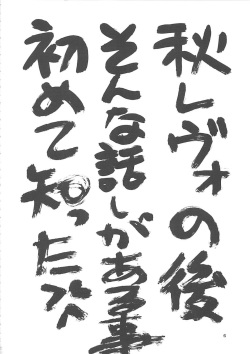 秋レヴォの後
そんな話しがある事
初めて知ったよ